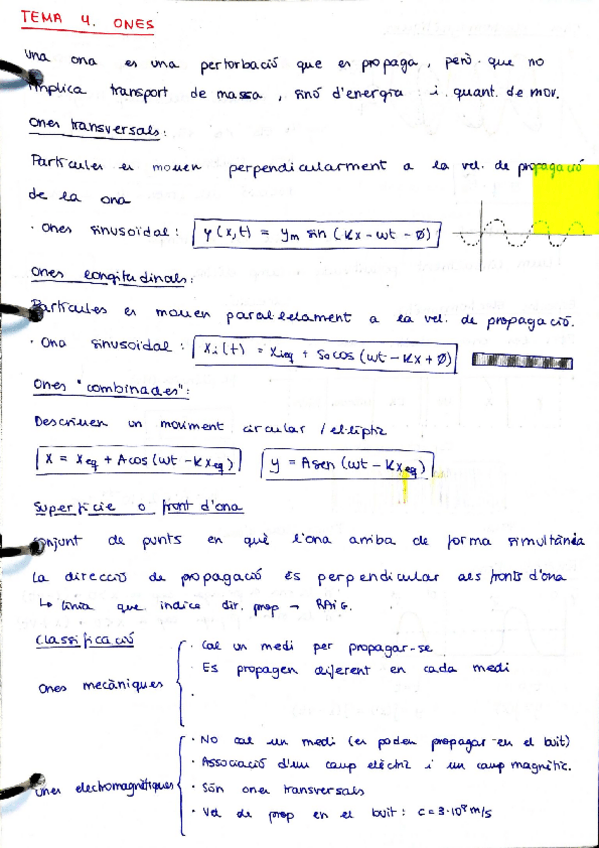 TEMA 4. ONES
Una ona es una pertorbació que es propaga, però que no
implica transport de massa, sinó d'energia i quant. de mov.
Ones transversals:
Partícules es mouen perpendicularment a la vel. de propagació
de la ona
· Ones sinusoïdal: y(x,t) = ym sin (Kx - wt - ø)
Ones longitudinals:
Partícules es mouen paral·lelament a la vel. de propagació.
· Ona sinusoïdal: Xi(t) = Xieq + So cos (wt - Kx + ø)
Ones "combinades":
Descriuen un moviment circular / el·líptic
X = Xeq + A cos (wt - KXeq) y = A sen (wt - KXeq)
Superfície o front d'ona
conjunt de punts en què l'ona arriba de forma simultània
La direcció de propagació és perpendicular als fronts d'ona
↳ línia que indica dir. prop → RAIG.
Classificació
Ones mecàniques
· Cal un medi per propagar-se
· Es propagen diferent en cada medi
·
Ones electromagnètiques
· No cal un medi (es poden propagar en el buit)
· Associació d'un camp elèctric i un camp magnètic.
· Són ones transversals
· Vel de prop en el buit: c = 3·10⁸ m/s